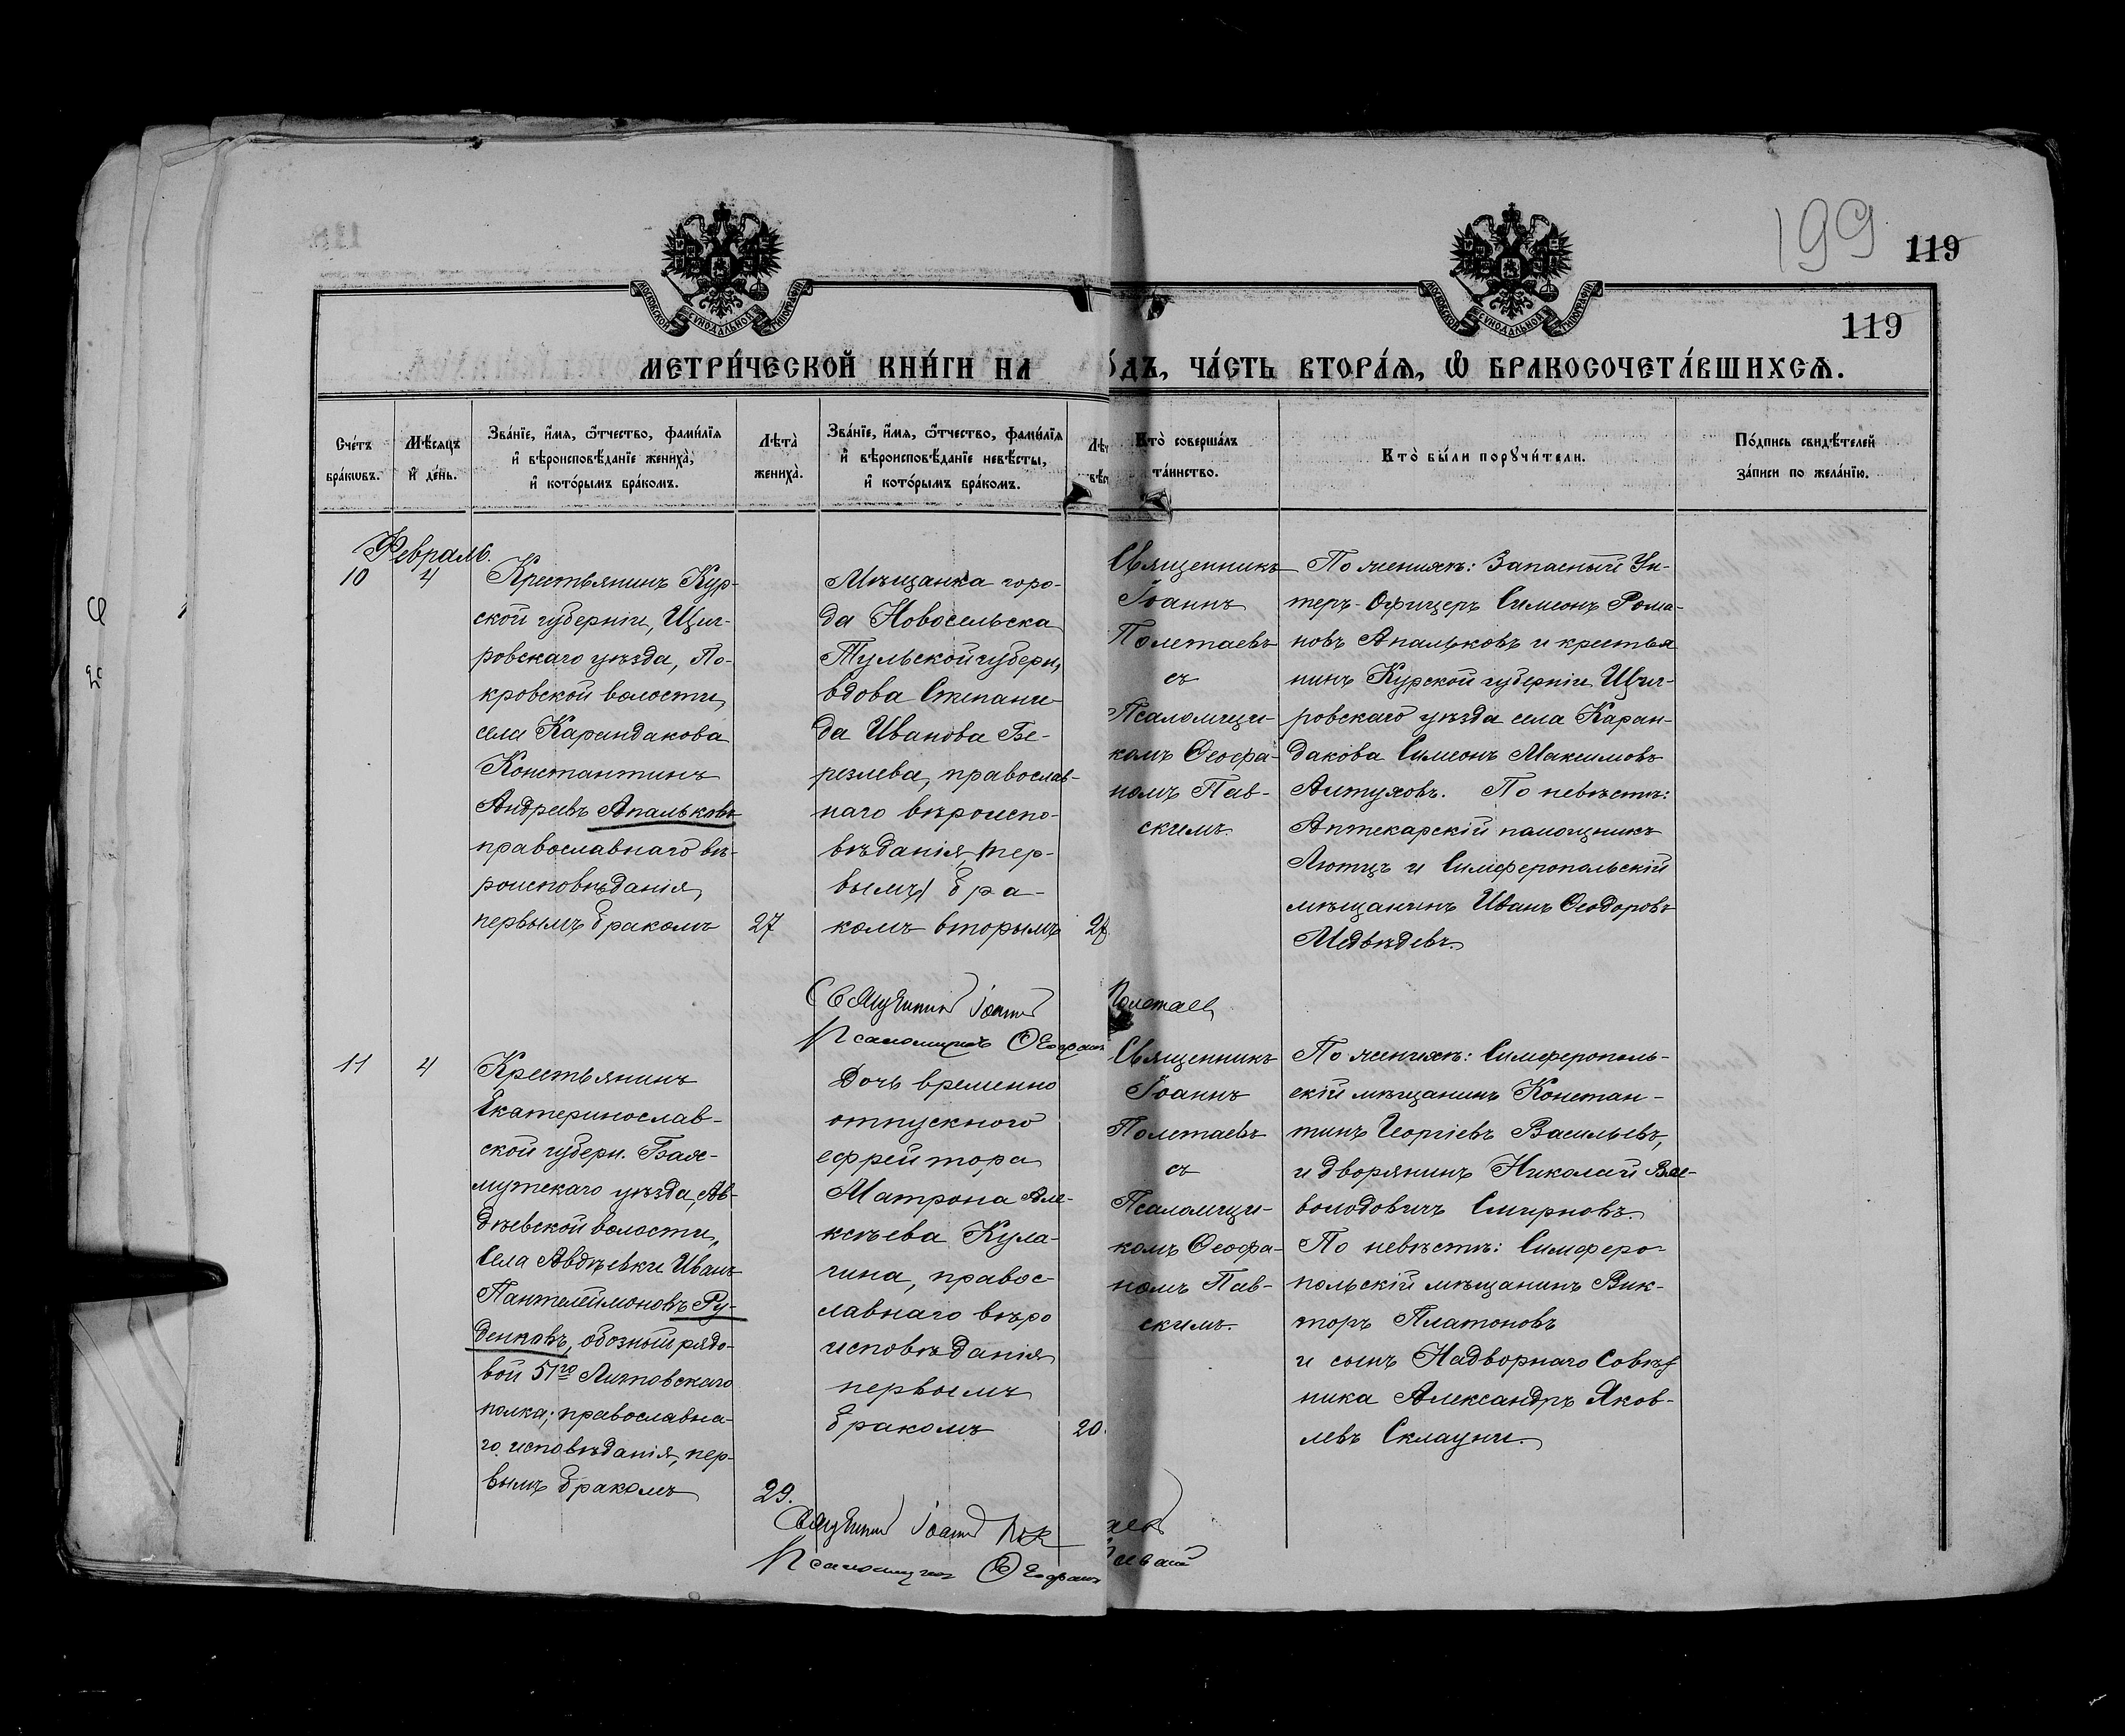 199
119
119
МОСКОВСКОЙ СѴНОДАЛЬНОЙ ТИПОГРАФІИ
МОСКОВСКОЙ СѴНОДАЛЬНОЙ ТИПОГРАФІИ
МЕТРИ́ЧЕСКОЙ КНИ́ГИ НА О́ДЪ, ЧА́СТЬ ВТОРА́Ѧ, Ѽ БРАКОСОЧЕТА́ВШИХСѦ.
Сче́тъ
бра́кѡвъ.
Мѣ́сѧцъ
и҆ де́нь.
Зва́нїе, и҆́мѧ, ѻ҆́тчество, фами́лїѧ
и҆ вѣроисповѣ́данїе жениха̀,
и҆ кото́рымъ бра́комъ.
Лѣта̀
жениха̀.
Зва́нїе, и҆́мѧ, ѻ҆́тчество, фами́лїѧ
и҆ вѣроисповѣ́данїе невѣ́сты,
и҆ кото́рымъ бра́комъ.
Кто̀ соверша́лъ
та́инство.
Кто̀ бы́ли порꙋчи́тели.
По́дпись свидѣ́телей
за́писи по жела́нїю.
Февраль.
10
4
Крестьянинъ Кур-
ской губерніи, Щиг-
ровскаго уѣзда, По-
кровской волости,
села Карандакова
Константинъ
Андреевъ Апальковъ
православнаго вѣ-
роисповѣданія,
первымъ бракомъ
27
Мѣщанка горо-
да Новосельска
Тульской губерн,
вдова Степани-
да Иванова Бе-
резлева, православ-
наго вѣроиспо-
вѣданія, пер-
вымъ бра-
комъ вторымъ
Священникъ
Іоаннъ
Полетаевъ
съ
Псаломщи-
комъ Ѳеофа-
номъ Пав-
скимъ
По женихѣ: Запасный Ун-
теръ-Офицеръ Симеонъ Рома-
новъ Апальковъ и крестья
нинъ Курской губерніи Щиг-
ровскаго уѣзда села Каран-
дакова Симеонъ Максимовъ
Алтуховъ. По невѣстѣ:
Аптекарскій помощникъ
Лютцъ и Симферопольскій
мѣщанинъ Иванъ Ѳеодоровъ
Медвѣдевъ.
Священникъ Іоаннъ Полетаев
Псаломщикъ Ѳеофан
11
4
Крестьянинъ
Екатеринослав-
ской губерн. Бах-
мутскаго уѣзда, Ав-
дѣевской волости,
Села Авдѣевки Иванъ
Пантелеймоновъ Ру-
денковъ, обозный рядо-
вой 51го Литовскаго
полка; православна-
го исповѣданія, пер-
вымъ бракомъ
29.
Дочь временно
отпускного
ефрейтора
Матрона Але-
ксѣева Кула-
гина, правос-
лавнаго вѣро
исповѣданія
первымъ
бракомъ
20
Священникъ
Іоаннъ
Полетаевъ
съ
Псаломщи-
комъ Ѳеофа-
номъ Пав-
скимъ.
По женихѣ: Симферополь-
скій мѣщанинъ Констан-
тинъ Георгіевъ Васильевъ,
и дворянинъ Николай Все-
володовичъ Смирновъ.
По невѣстѣ: Симферо-
польскій мѣщанинъ Вик-
торъ Платоновъ
и сынъ Надворнаго Совѣт
ника Александръ Яков-
левъ Склауни.
Священникъ Іоаннъ
Псаломщикъ Ѳеофан